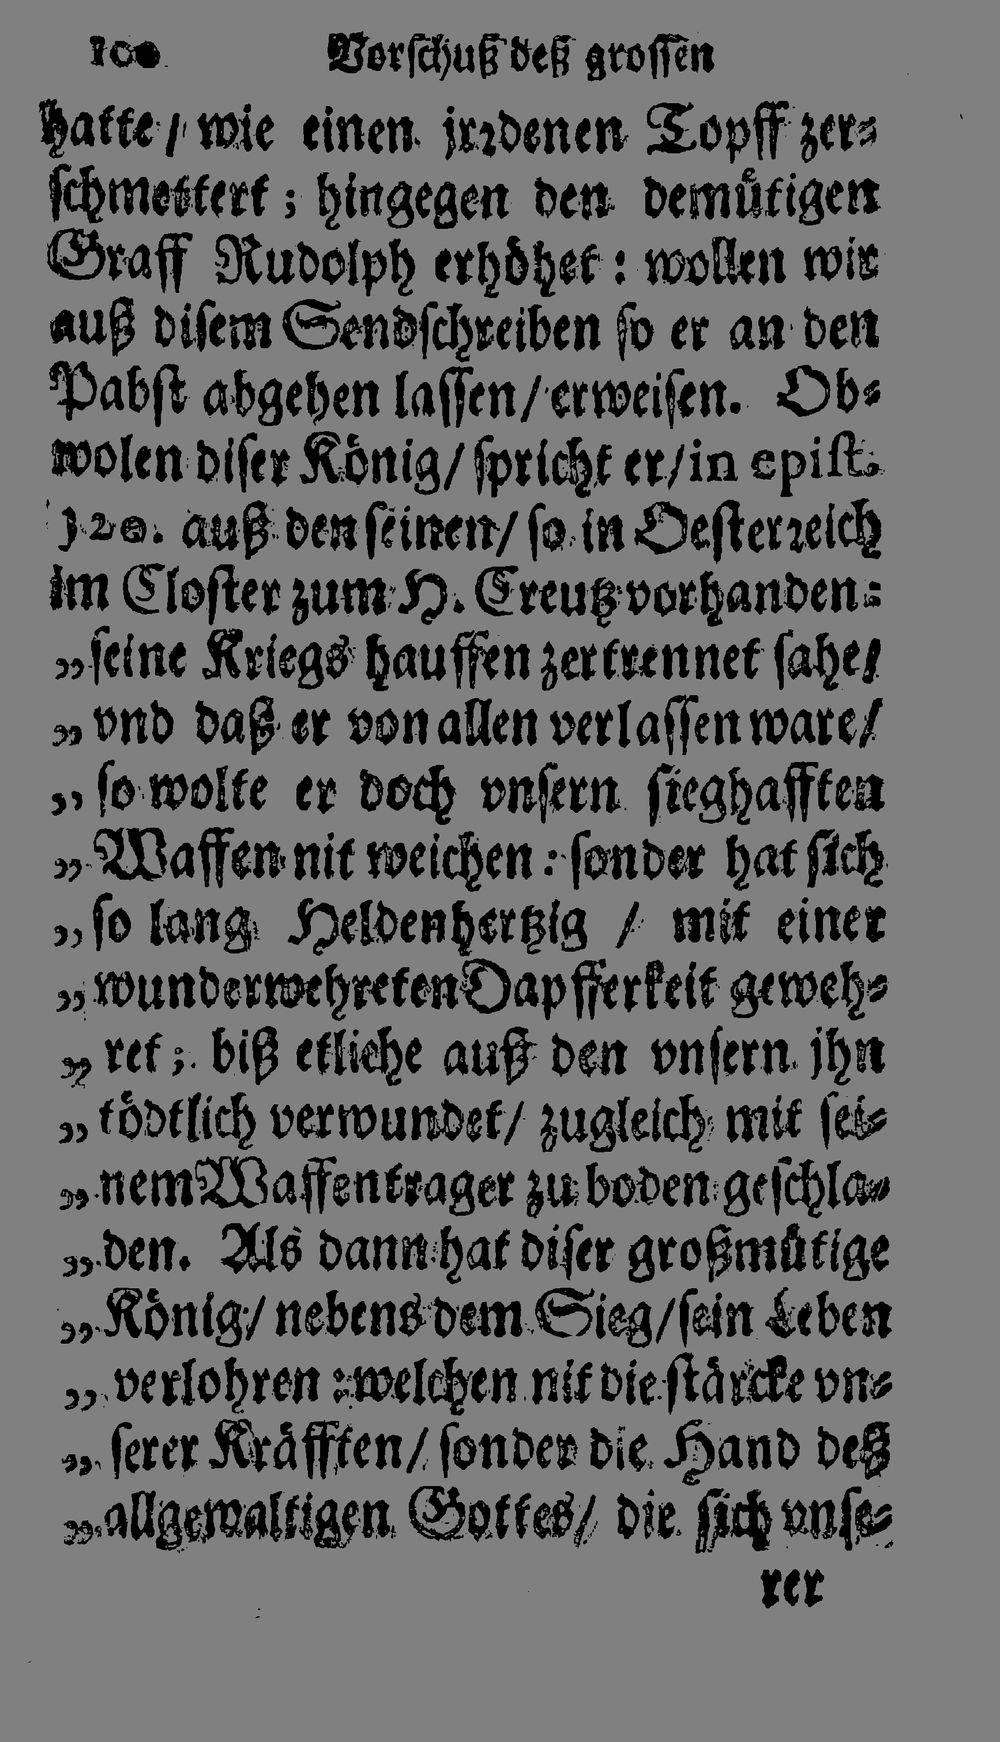 100 Vorschuß deß grossen
hatte / wie einen jrꝛdenen Topff zer-
schmettert ; hingegen den demuͤtigen
Graff Rudolph erhoͤhet : wollen wir
auß disem Sendschreiben so er an den
Pabst abgehen lassen / erweisen. Ob-
wolen diser König / spricht er / in epist.
120. auß den seinen / so in Oesterꝛeich
im Closter zum H. Creutz vorhanden :
„ seine Kriegs hauffen zertrennet sahe /
„ vnd daß er von allen verlassen ware /
„ so wolte er doch vnsern sieghafften
„ Waffen nit weichen : sonder hat sich
„ so lang Heldenhertzig / mit einer
„ wunderwehreten Dapfferkeit geweh-
„ ret ; biß etliche auß den vnsern jhn
„ tödtlich verwundet / zugleich mit sei-
„ nem Waffentrager zu boden geschla-
„ den. Als dann hat diser großmuͤtige
„ König / nebens dem Sieg / sein Leben
„ verlohren : welchen nit die stärcke vn-
„ serer Kräfften / sonder die Hand deß
„ allgewaltigen Gottes / die sich vnse-
rer